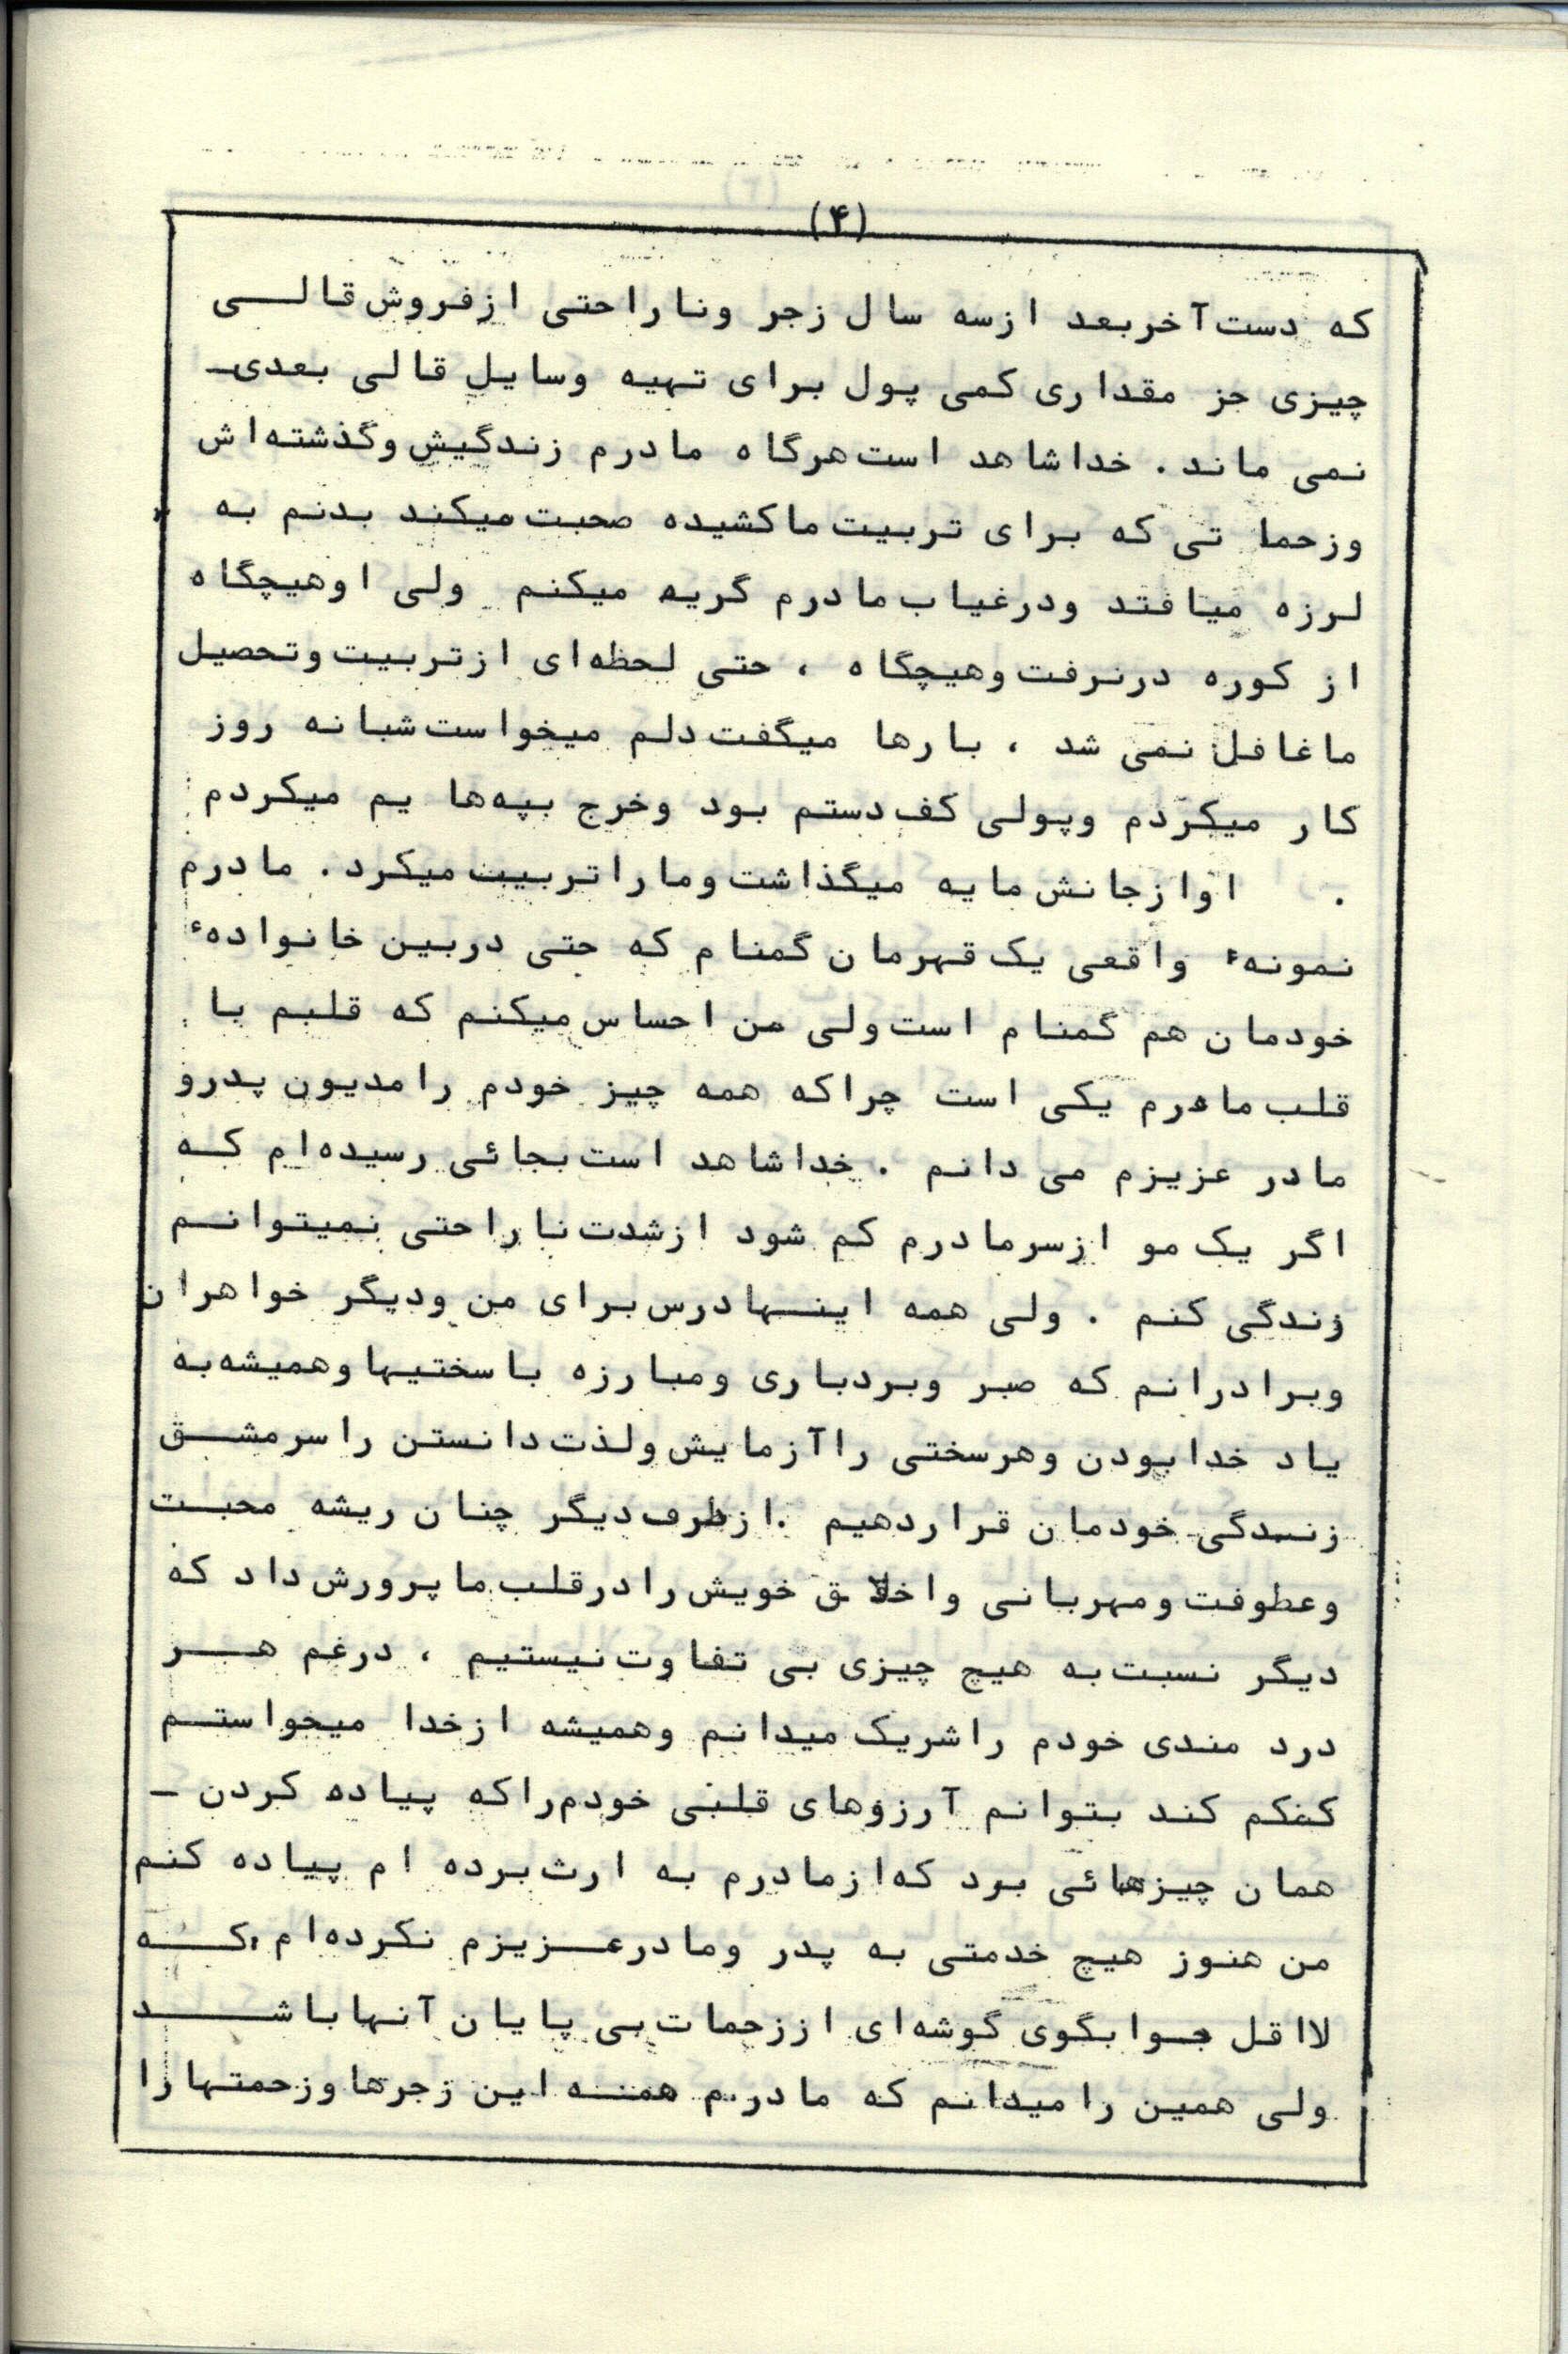 (۴)
که دست آخر بعد از سه سال زجر و ناراحتی از فروش قالی
چیزی جز مقداری کمی پول برای تهیه وسایل قالی بعدی ـ
نمی ماند . خدا شاهد است هرگاه مادرم زندگیش و گذشته‌اش
و زحماتی که برای تربیت ما کشیده صحبت میکند بدنم به
لرزه میافتد و در غیاب مادرم گریه میکنم ولی او هیچگاه
از کوره در نرفت و هیچگاه ، حتی لحظه‌ای از تربیت و تحصیل
ما غافل نمی شد ، بارها میگفت دلم میخواست شبانه روز
کار میکردم و پولی کف دستم بود و خرج بپه‌ها یم میکردم
. او از جانش مایه میگذاشت و ما را تربیت میکرد . مادرم
نمونهٔ واقعی یک قهرمان گمنام که حتی در بین خانوادهٔ
خودمان هم گمنام است ولی من احساس میکنم که قلبم با
قلب مادرم یکی است چرا که همه چیز خودم را مدیون پدر و
مادر عزیزم می دانم . خدا شاهد است بجائی رسیده‌ام که
اگر یک مو از سر مادرم کم شود از شدت ناراحتی نمیتوانم
زندگی کنم . ولی همه اینها درس برای من و دیگر خواهران
و برادرانم که صبر و بردباری و مبارزه با سختیها و همیشه به
یاد خدا بودن و هر سختی را آزمایش و لذت دانستن را سرمشق
زندگی خودمان قرار دهیم . از طرف دیگر چنان ریشه محبت
و عطوفت و مهربانی و اخلاق خویش را در قلب ما پرورش داد که
دیگر نسبت به هیچ چیزی بی تفاوت نیستیم ، در غم هر
درد مندی خودم را شریک میدانم و همیشه از خدا میخواستم
کمکم کند بتوانم آرزوهای قلبی خودم را که پیاده کردن ـ
همان چیزهائی بود که از مادرم به ارث برده ام پیاده کنم
من هنوز هیچ خدمتی به پدر و مادر عزیزم نکرده‌ام که
لااقل جوابگوی گوشه‌ای از زحمات بی پایان آنها باشد
ولی همین را میدانم که مادرم همه این زجرها و زحمتها را